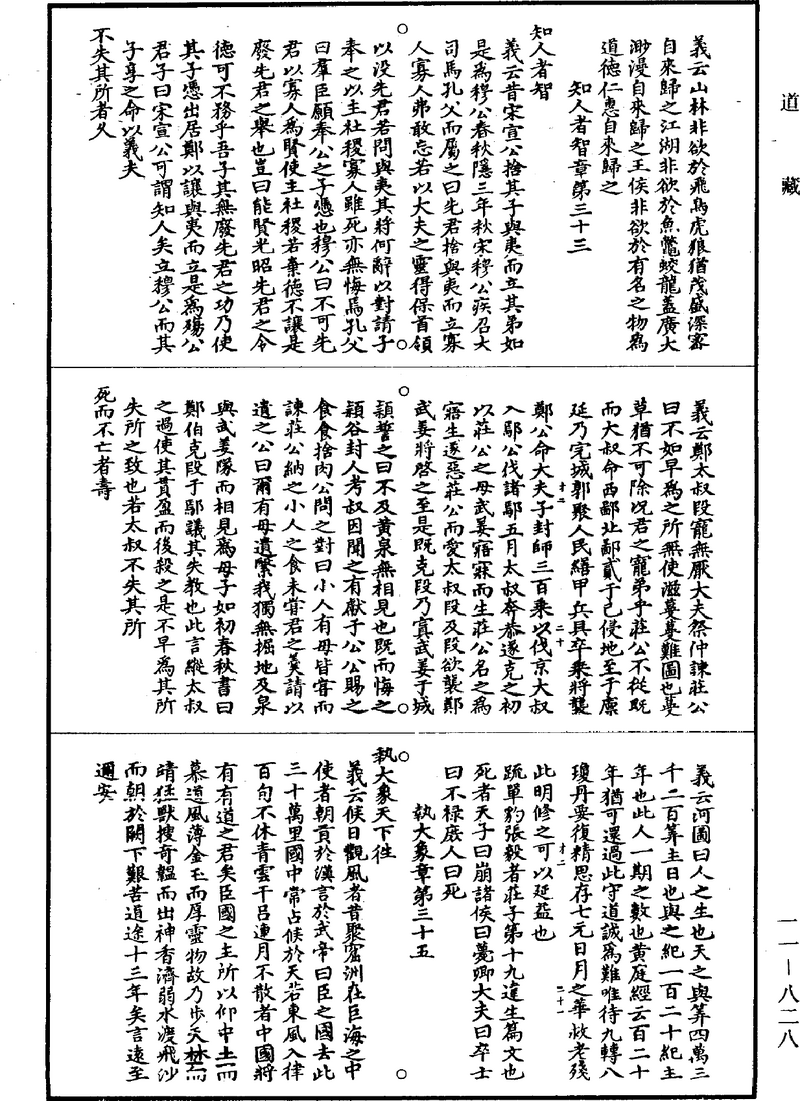 道藏
義云山林非欲於飛鳥虎狼猶茂盛深密
自來歸之江湖非欲於魚鼈蛟龍蓋廣大
渺漫自來歸之王侯非欲於有名之物為
道德仁惠自來歸之
知人者智章第三十三
知人者智
義云昔宋宣公捨其子與夷而立其弟如
是為穆公春秋隱三年秋宋穆公疾召大
司馬孔父而屬之曰先君捨與夷而立寡
人寡人弗敢忘若以大夫之靈得保首領
以沒先君若問與夷其將何辭以對請子
奉之以主社稷寡人雖死亦無悔焉孔父
曰羣臣願奉公之子馮也穆公曰不可先
君以寡人為賢使主社稷若棄德不讓是
廢先君之舉也豈曰能賢光昭先君之令
德可不務乎吾子其無廢先君之功乃使
其子馮出居鄭以讓與夷而立是為殤公
君子曰宋宣公可謂知人矣立穆公而其
子享之命以義夫
不失其所者久
義云鄭太叔段寵無厭大夫祭仲諫莊公
曰不如早為之所無使滋蔓蔓難圖也蔓
草猶不可除況君之寵弟乎莊公不從既
而大叔命西鄙北鄙貳于己侵地至于廩
延乃完城郭聚人民繕甲兵具卒乘將襲
鄭公命大夫子封帥三百乘以伐京大叔
入鄢公伐諸鄢五月太叔奔恭遂克之初
以莊公之母武姜寤寐而生莊公名之為
寤生遂惡莊公而愛太叔段及段欲襲鄭
武姜將啓之至是既克段乃寘武姜于城
潁誓之曰不及黃泉無相見也既而悔之
潁谷封人考叔因聞之有獻于公公賜之
食食捨肉公問之對曰小人有母皆甞而
諫莊公納之小人之食未甞君之羹請以
遺之公曰爾有母遺繄我獨無掘地及泉
與武姜隧而相見為母子如初春秋書曰
鄭伯克段于鄢議其失教也此言縱太叔
之過使其貫盈而後殺之是不早為其所
失所之致也若太叔不失其所
死而不亡者壽
義云河圖曰人之生也天之與筭四萬三
千二百筭主日也與之紀一百二十紀主
年也此人一期之數也黃庭經云百二十
年猶可還過此守道誠為難唯待九轉八
瓊丹要復精思存七元日月之華救老殘
此明修之可以延益也
䟽單豹張毅者莊子第十九達生篇文也
死者天子曰崩諸侯曰薨卿大夫曰卒士
曰不祿庶人曰死
執大象章第三十五
執大象天下往
義云候日觀風者昔聚窟洲在巨海之中
使者朝貢於漢言於武帝曰臣之國去此
三十萬里國中常占候於天若東風入律
百旬不休青雲干呂連月不散者中國將
有有道之君矣臣國之主所以仰中土而
慕道風薄金玉而厚靈物故乃步天林而
請猛獸搜奇韞而出神香濟弱水渡飛沙
而朝於闕下艱苦道途十三年矣言遠至
邇安
一一—八二八